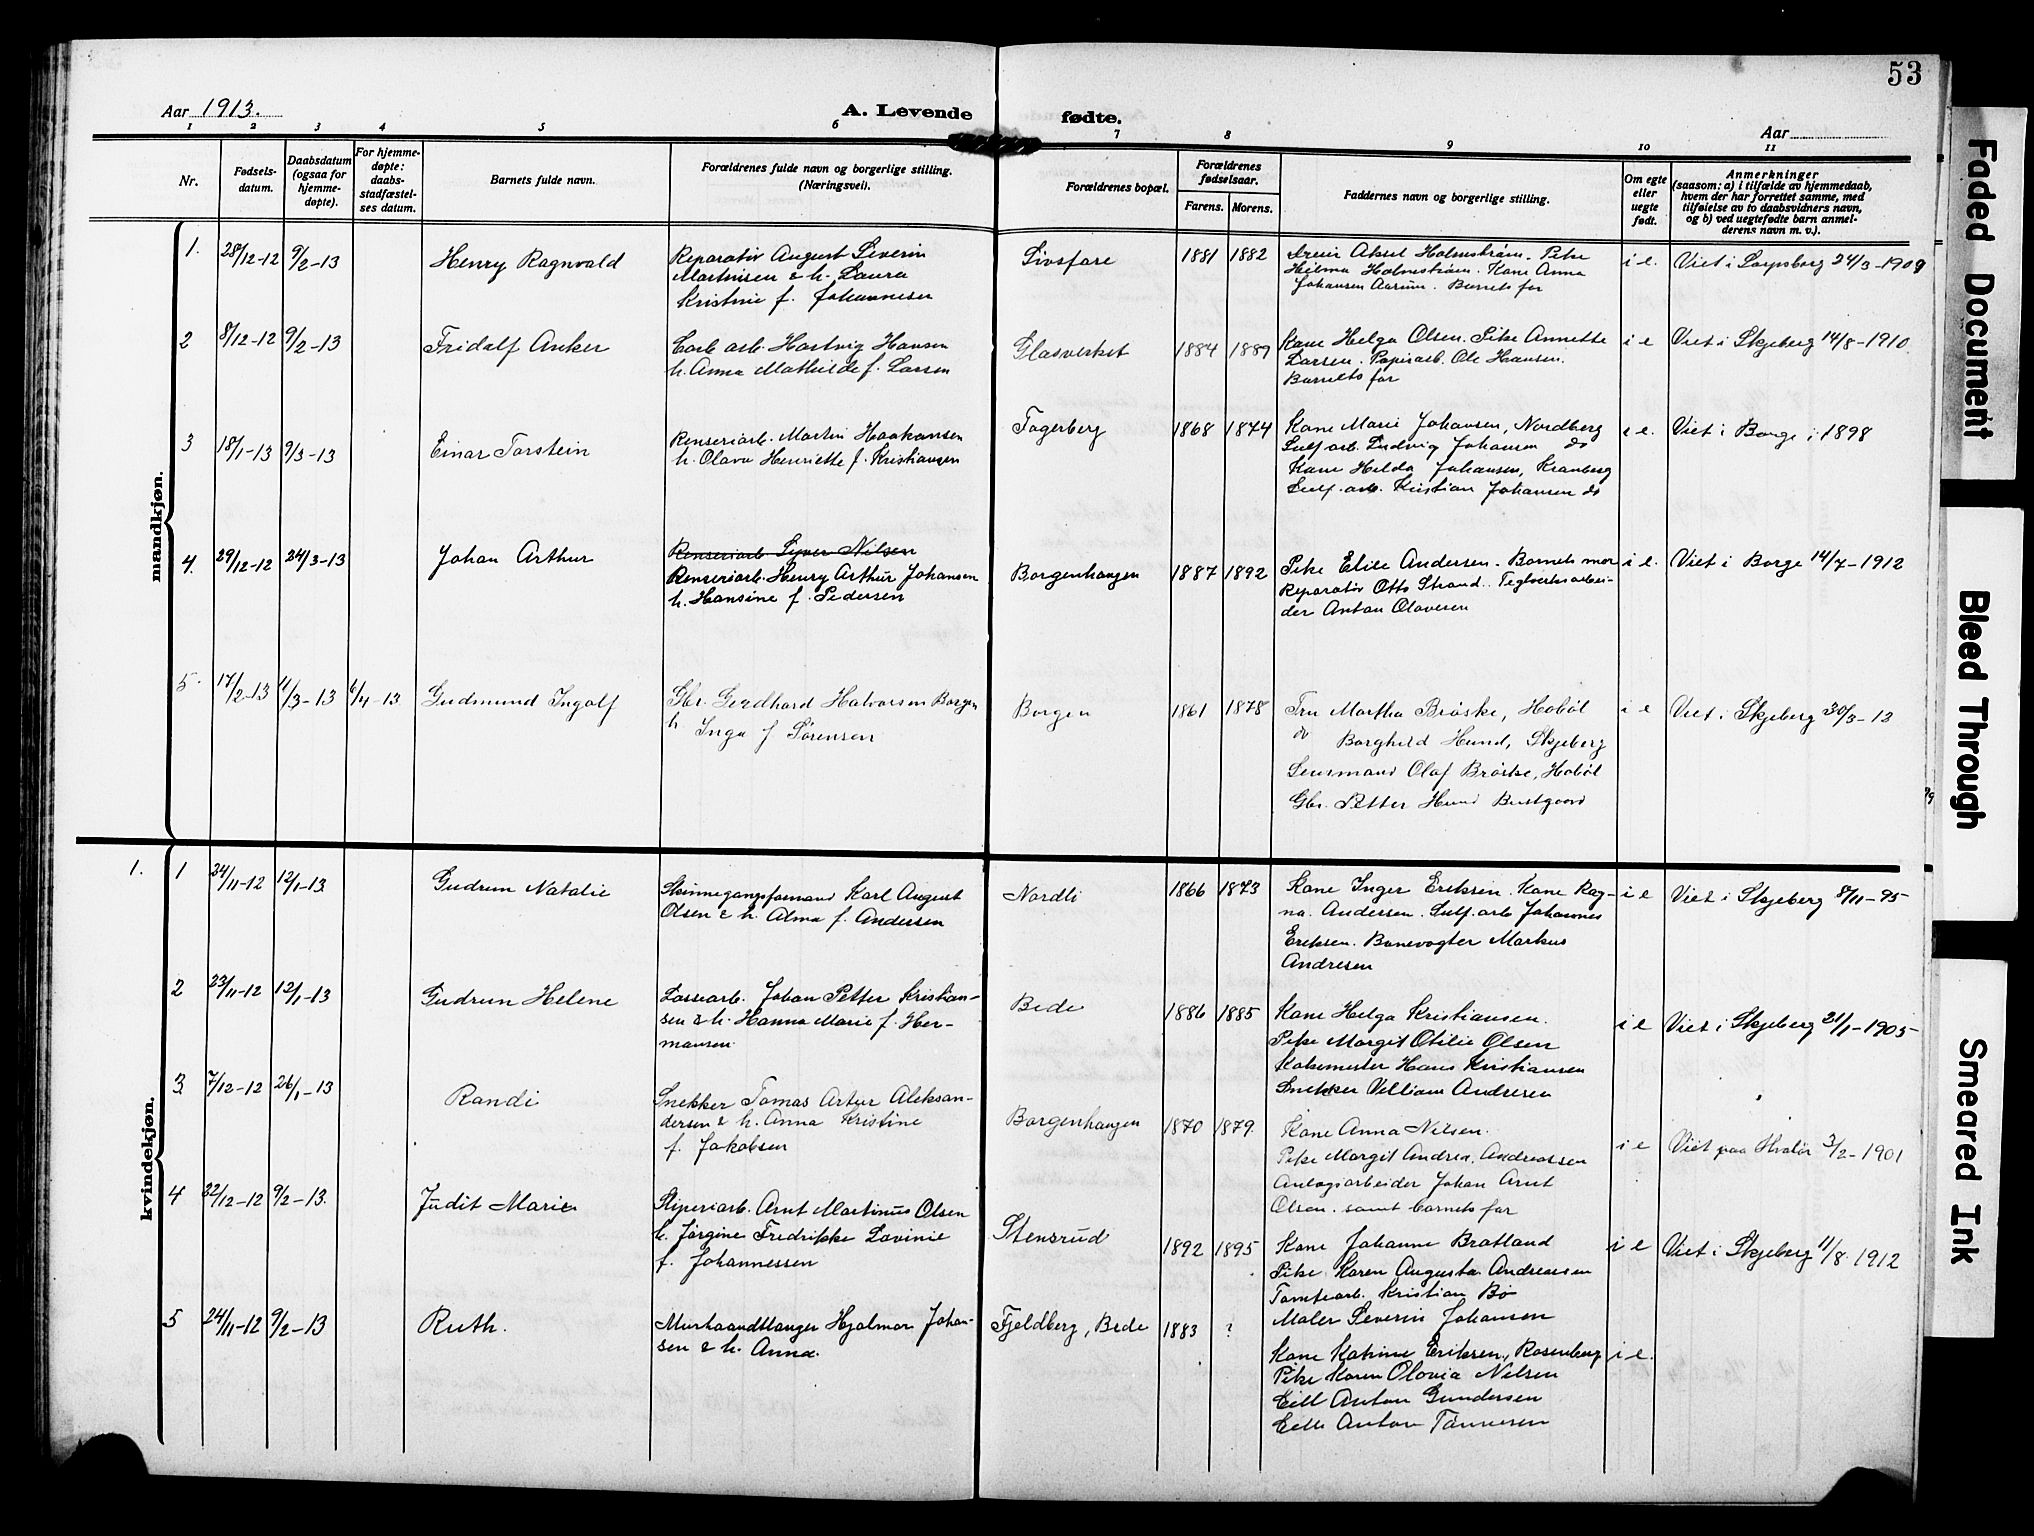 53
Aar 1913.
A. Levende
fødte.
Aar
1 2 3 4 5 6 7 8 9 10 11
Nr.
Fødsels-
datum.
Daabsdatum
(ogsaa for
hjemme-
døpte).
For hjemme-
døpte:
daabs-
stadfæstel-
ses datum.
Barnets fulde navn.
Forældrenes fulde navn og borgerlige stilling.
(Næringsvei).
Forældrenes bopæl.
Forældrenes
fødselsaar.
Farens. Morens.
Faddernes navn og borgerlige stilling.
Om egte
eller
uegte
født.
Anmerkninger
(saasom: a) i tilfælde av hjemmedaab,
hvem der har forrettet samme, med
tilføielse av to daabsvidners navn,
og b) ved uegtefødte barn anmel-
derens navn m. v.).
mandkjøn.
1. 28/12-12 9/2-13 Henry Ragnvald
Reparatør August Severin
Martinsen & h. Laura
Kristine f. Johannesen
1881 1882
Aksel Holmstrøm. Pike
Helma Holmstrøm. Kone Anna
Johansen Aarum. Barnets far
i e. Viet i Sarpsborg 24/3-1909
2 8/12-12 9/2-13 Fridolf Anker
Carb. arb. Hartvig Hansen
h. Anna Mathilde f. Larsen
Glasverket 1884 1889
Kone Helga Olsen. Pike Annette
Larsen. Papirarb. Ole Hansen.
Barnets far
i e Viet i Skjeberg 14/8-1910
3 18/1-13 9/3-13 Einar Torstein
Renseriarb. Martin Haakonsen
h. Olava Henriette f. Kristiansen
Fagerberg 1868 1874
Kone Marie Johansen, Nordberg
Sulf. arb. Ludvig Johansen do
Kone Hilda Johansen, Kranberg
Sulf. arb. Kristian Johansen do
i e. Viet i Borge i 1898
4. 29/12-12 24/3-13 Johan Arthur
Renseriarb. Syver Nilsen
Renseriarb. Henry Arthur Johansen
h. Hansine f. Pedersen
Borgenhaugen 1887 1892
Pike Elise Andersen. Barnets mor
Reparatør Otto Strand. Teglverksarbei-
der Anton Olavesen
i e. Viet i Borge 14/7-1912
5. 17/2-13 11/3-13 6/4-13. Gudmund Ingolf
Gbr. Gerdhard Halvorsen Borgen
h. Inga f. Sørensen
Borgen 1861 1878
Fru Martha Brøske, Hobøl
do Borghild Hund, Skjeberg
Lensmand Olaf Brøske, Hobøl
Gbr. Petter Hund Bustgaard
i e Viet i Skjeberg 30/3-12
kvindekjøn.
1. 1 24/11-12 12/1-13 Gudrun Natalie
Skinnegangsformand Karl August
Olsen & h. Alma f. Andersen
Nordli 1866 1873
Kone Inger Eriksen. Kone Rag-
na. Andersen. Sulf. arb Johannes
Eriksen. Banevogter Markus
Andresen
i e Viet i Skjeberg 8/11-95
2 23/11-12 12/1-13 Gudrun Helene
Lossearb. Johan Petter Kristian-
sen & h. Hanna Marie f. Her-
mansen
Bede 1886 1885
Kone Helga Kristiansen.
Pike Margit Otilie Olsen
Koksmester Hans Kristiansen
Snekker Villiam Andresen
i e Viet i Skjeberg 21/1-1905
3 7/12-12 26/1-13 Randi
Snekker Tomas Artur Aleksan-
dersen & h. Anna Kristine
f. Jakobsen
Borgenhaugen 1870 1879.
Kone Anna Nilsen.
Pike Margit Andrea Andreassen
Anlægsarbeider Johan Arnt
Olsen. samt barnets far
i e Viet paa Hvaler 3/2-1901
4 22/12-12 9/2-13. Judit Marie
Sliperiarb. Arnt Martinus Olsen
h. Jørgine Fredrikke Lovinie
f. Johannessen
Stensrud 1892 1895
Kone Johanne Bratland
Pike Karen Augusta Andreassen
Tomtearb. Kristian Bø
Maler Severin Johansen
i e Viet i Skjeberg 11/8-1912
5 24/11-12 9/2-13 Ruth.
Murhaandlanger Hjalmar Johan-
sen & h. Anna.
Fjeldberg, Bede 1883 ?
Kone Katrine Eriksen, Rosenberg
Pike Karen Olovia Nilsen
Anton Gundersen
Anton Tønnesen
i e.
Faded Document
Bleed Through
Smeared Ink